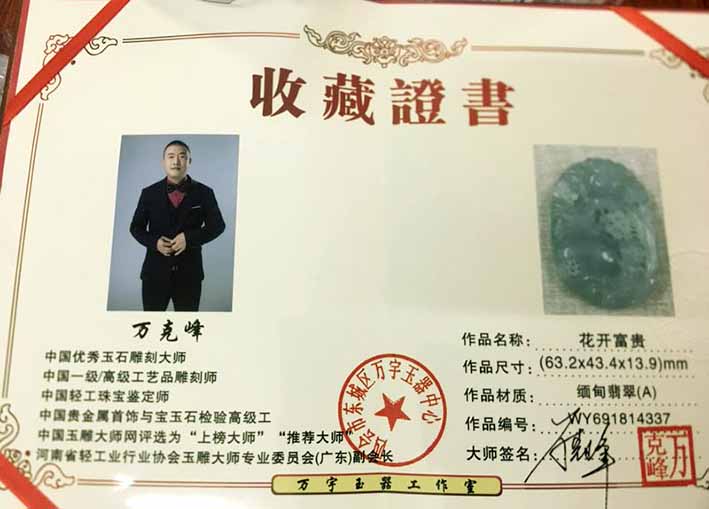 收藏證書
万克峰
中国优秀玉石雕刻大师
中国一级/高级工艺品雕刻师
中国轻工珠宝鉴定师
中国贵金属首饰与宝玉石检验高级工
中国玉雕大师网评选为“上榜大师”“推荐大师”
河南省轻工业行业协会玉雕大师专业委员会(广东)副会长
作品名称: 花开富贵
作品尺寸: (63.2x43.4x13.9)mm
作品材质: 缅甸翡翠(A)
作品编号: WY691814337
大师签名:
万克峰
会市东城区万宇玉器中心
万宇玉器工作室